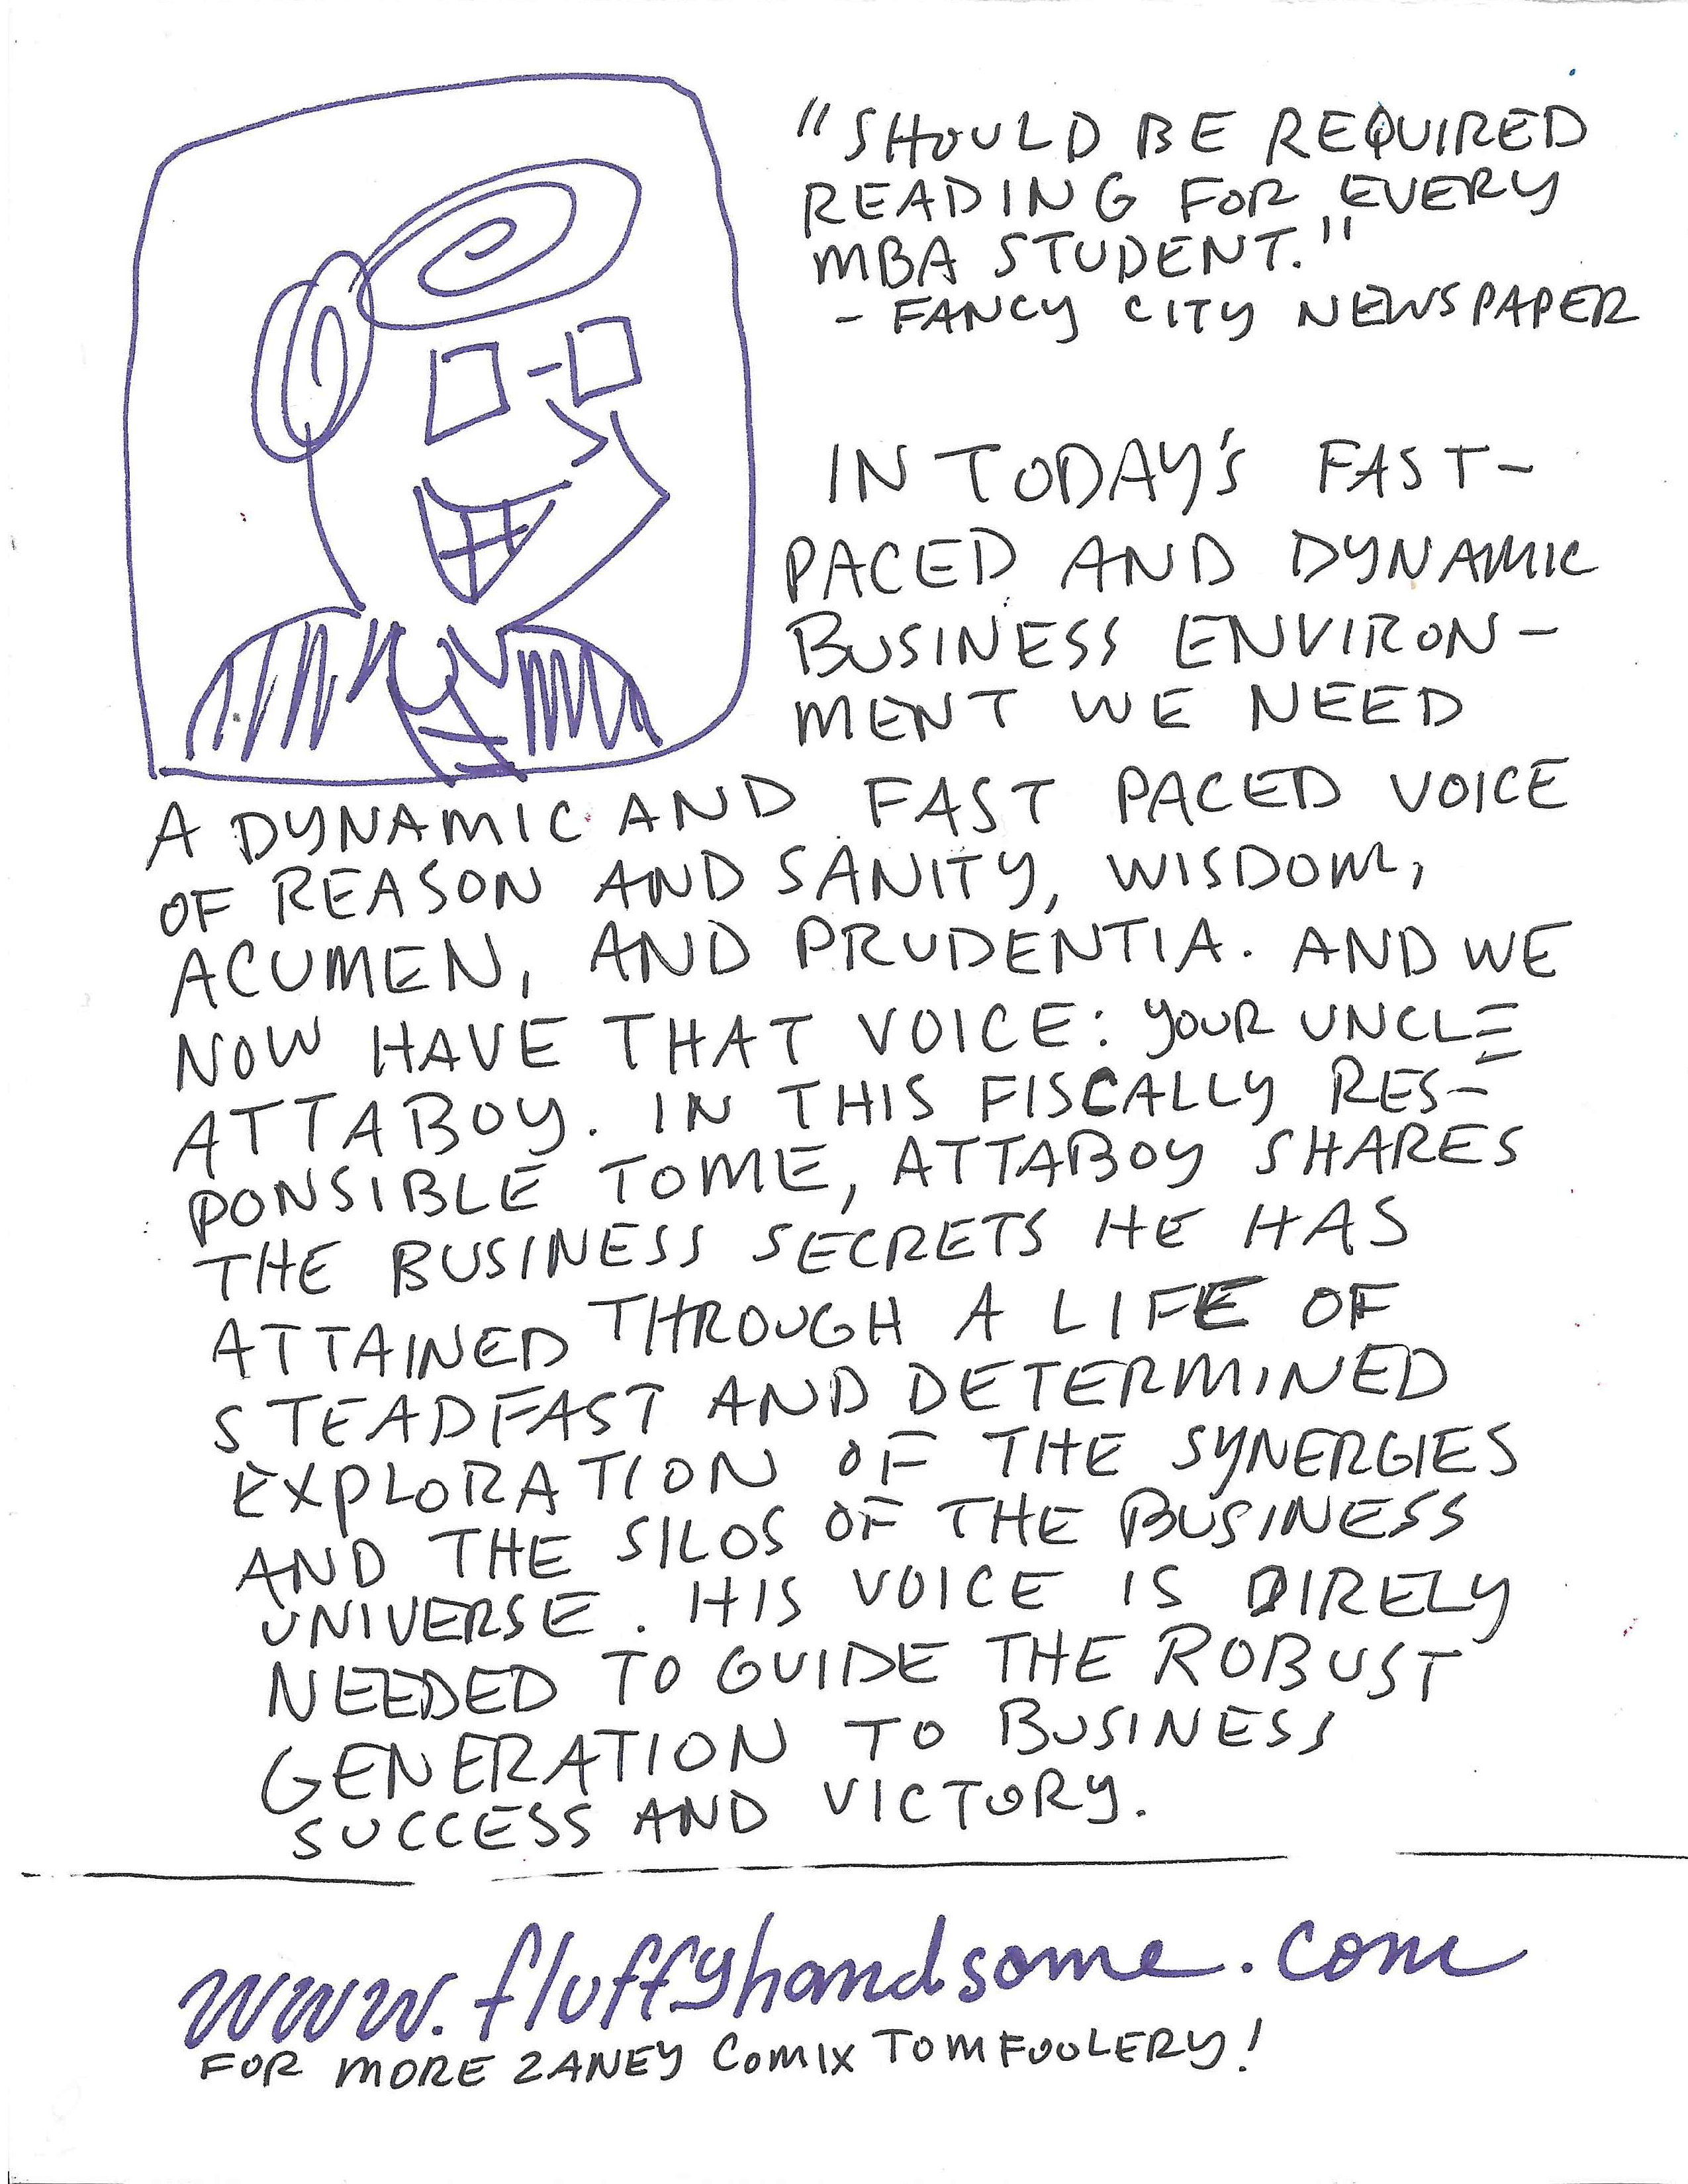 "SHOULD BE REQUIRED
READING FOR EVERY
MBA STUDENT."
- FANCY CITY NEWSPAPER
IN TODAY'S FAST-
PACED AND DYNAMIC
BUSINESS ENVIRON-
MENT WE NEED
A DYNAMIC AND FAST PACED VOICE
OF REASON AND SANITY, WISDOM,
ACUMEN, AND PRUDENTIA. AND WE
NOW HAVE THAT VOICE: YOUR UNCLE
ATTABOY. IN THIS FISCALLY RES-
PONSIBLE TOME, ATTABOY SHARES
THE BUSINESS SECRETS HE HAS
ATTAINED THROUGH A LIFE OF
STEADFAST AND DETERMINED
EXPLORATION OF THE SYNERGIES
AND THE SILOS OF THE BUSINESS
UNIVERSE. HIS VOICE IS DIRELY
NEEDED TO GUIDE THE ROBUST
GENERATION TO BUSINESS
SUCCESS AND VICTORY.
www.fluffyhandsome.com
FOR MORE ZANEY COMIX TOMFOOLERY!